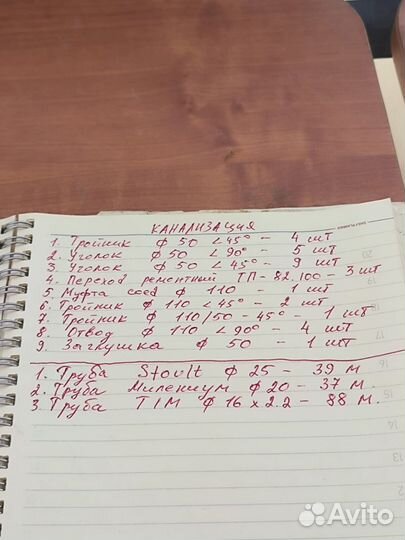 КАНАЛИЗАЦИЯ
1. Тройник ф 50 <45° - 4 шт
2. Уголок ф 50 <90° - 5 шт
3. Уголок ф 50 <45° - 9 шт
4. Переход ремонтный ТП-82.100 - 3 шт
5. Муфта соед ф 110 - 1 шт
6. Тройник ф 110 <45° - 2 шт
7. Тройник ф 110/50 - 45° - 1 шт
8. Отвод ф 110 <90° - 4 шт
9. Заглушка ф 50 - 1 шт
1. Труба Stoult ф 25 - 39 м
2. Труба Милениум ф 20 - 37 м.
3. Труба TIM ф 16 x 2.2 - 88 м.
20
19
18
17
16
15
14
13
12
Avito